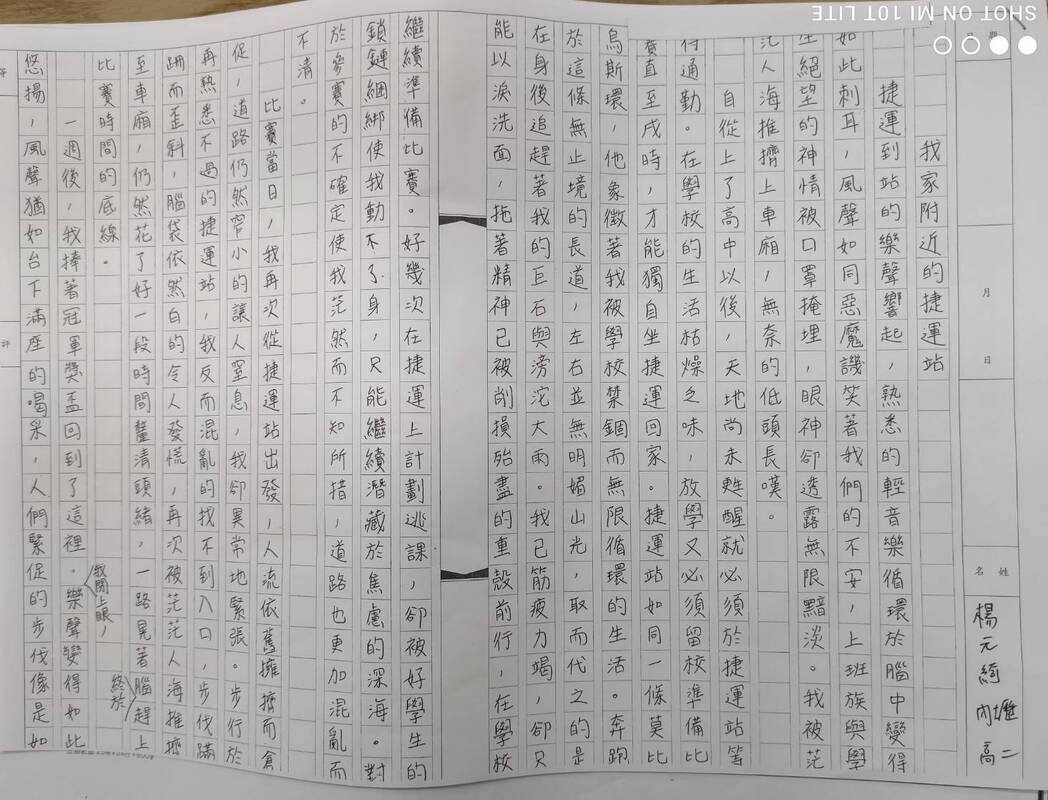 SHOT ON MI 10T LITE
月 日
姓名
楊元綺
內壢高二
我家附近的捷運站
捷運到站的樂聲響起，熟悉的輕音樂循環於腦中變得
如此刺耳，風聲如同惡魔譏笑著我們的不安，上班族與學
生絕望的神情被口罩掩埋，眼神卻透露無限黯淡。我被茫
茫人海推擠上車廂，無奈的低頭長嘆。
自從上了高中以後，天地尚未甦醒就必須於捷運站等
待通勤。在學校的生活枯燥之味，放學又必須留校準備比
賽直至戌時，才能獨自坐捷運回家。捷運站如同一條莫比
烏斯環，他象徵著我被學校禁錮而無限循環的生活。奔跑
於這條無止境的長道，左右並無明媚山光，取而代之的是
在身後追趕著我的巨石與滂沱大雨。我已筋疲力竭，卻只
能以淚洗面，拖著精神已被削損殆盡的重殼前行，在學校
繼續準備比賽。好幾次在捷運上計劃逃課，卻被好學生的
鎖鏈綑綁使我動不了身，只能繼續潛藏於焦慮的深海。對
於參賽的不確定使我茫然而不知所措，道路也更加混亂而
不清。
比賽當日，我再次從捷運站出發，人流依舊擁擠而倉
促，道路仍然窄小的讓人窒息，我卻異常地緊張。步行於
再熟悉不過的捷運站，我反而混亂的找不到入口，步伐蹣
跚而歪斜，腦袋依然白的令人發慌，再次被茫茫人海推擠
至車廂，仍然花了好一段時間釐清頭緒，一路晃著腦終於趕上
比賽時間的底線。
一週後，我捧著冠軍獎盃回到了這裡。我閉上眼，樂聲變得如此
悠揚，風聲猶如台下滿座的喝采，人們緊促的步伐像是如
評